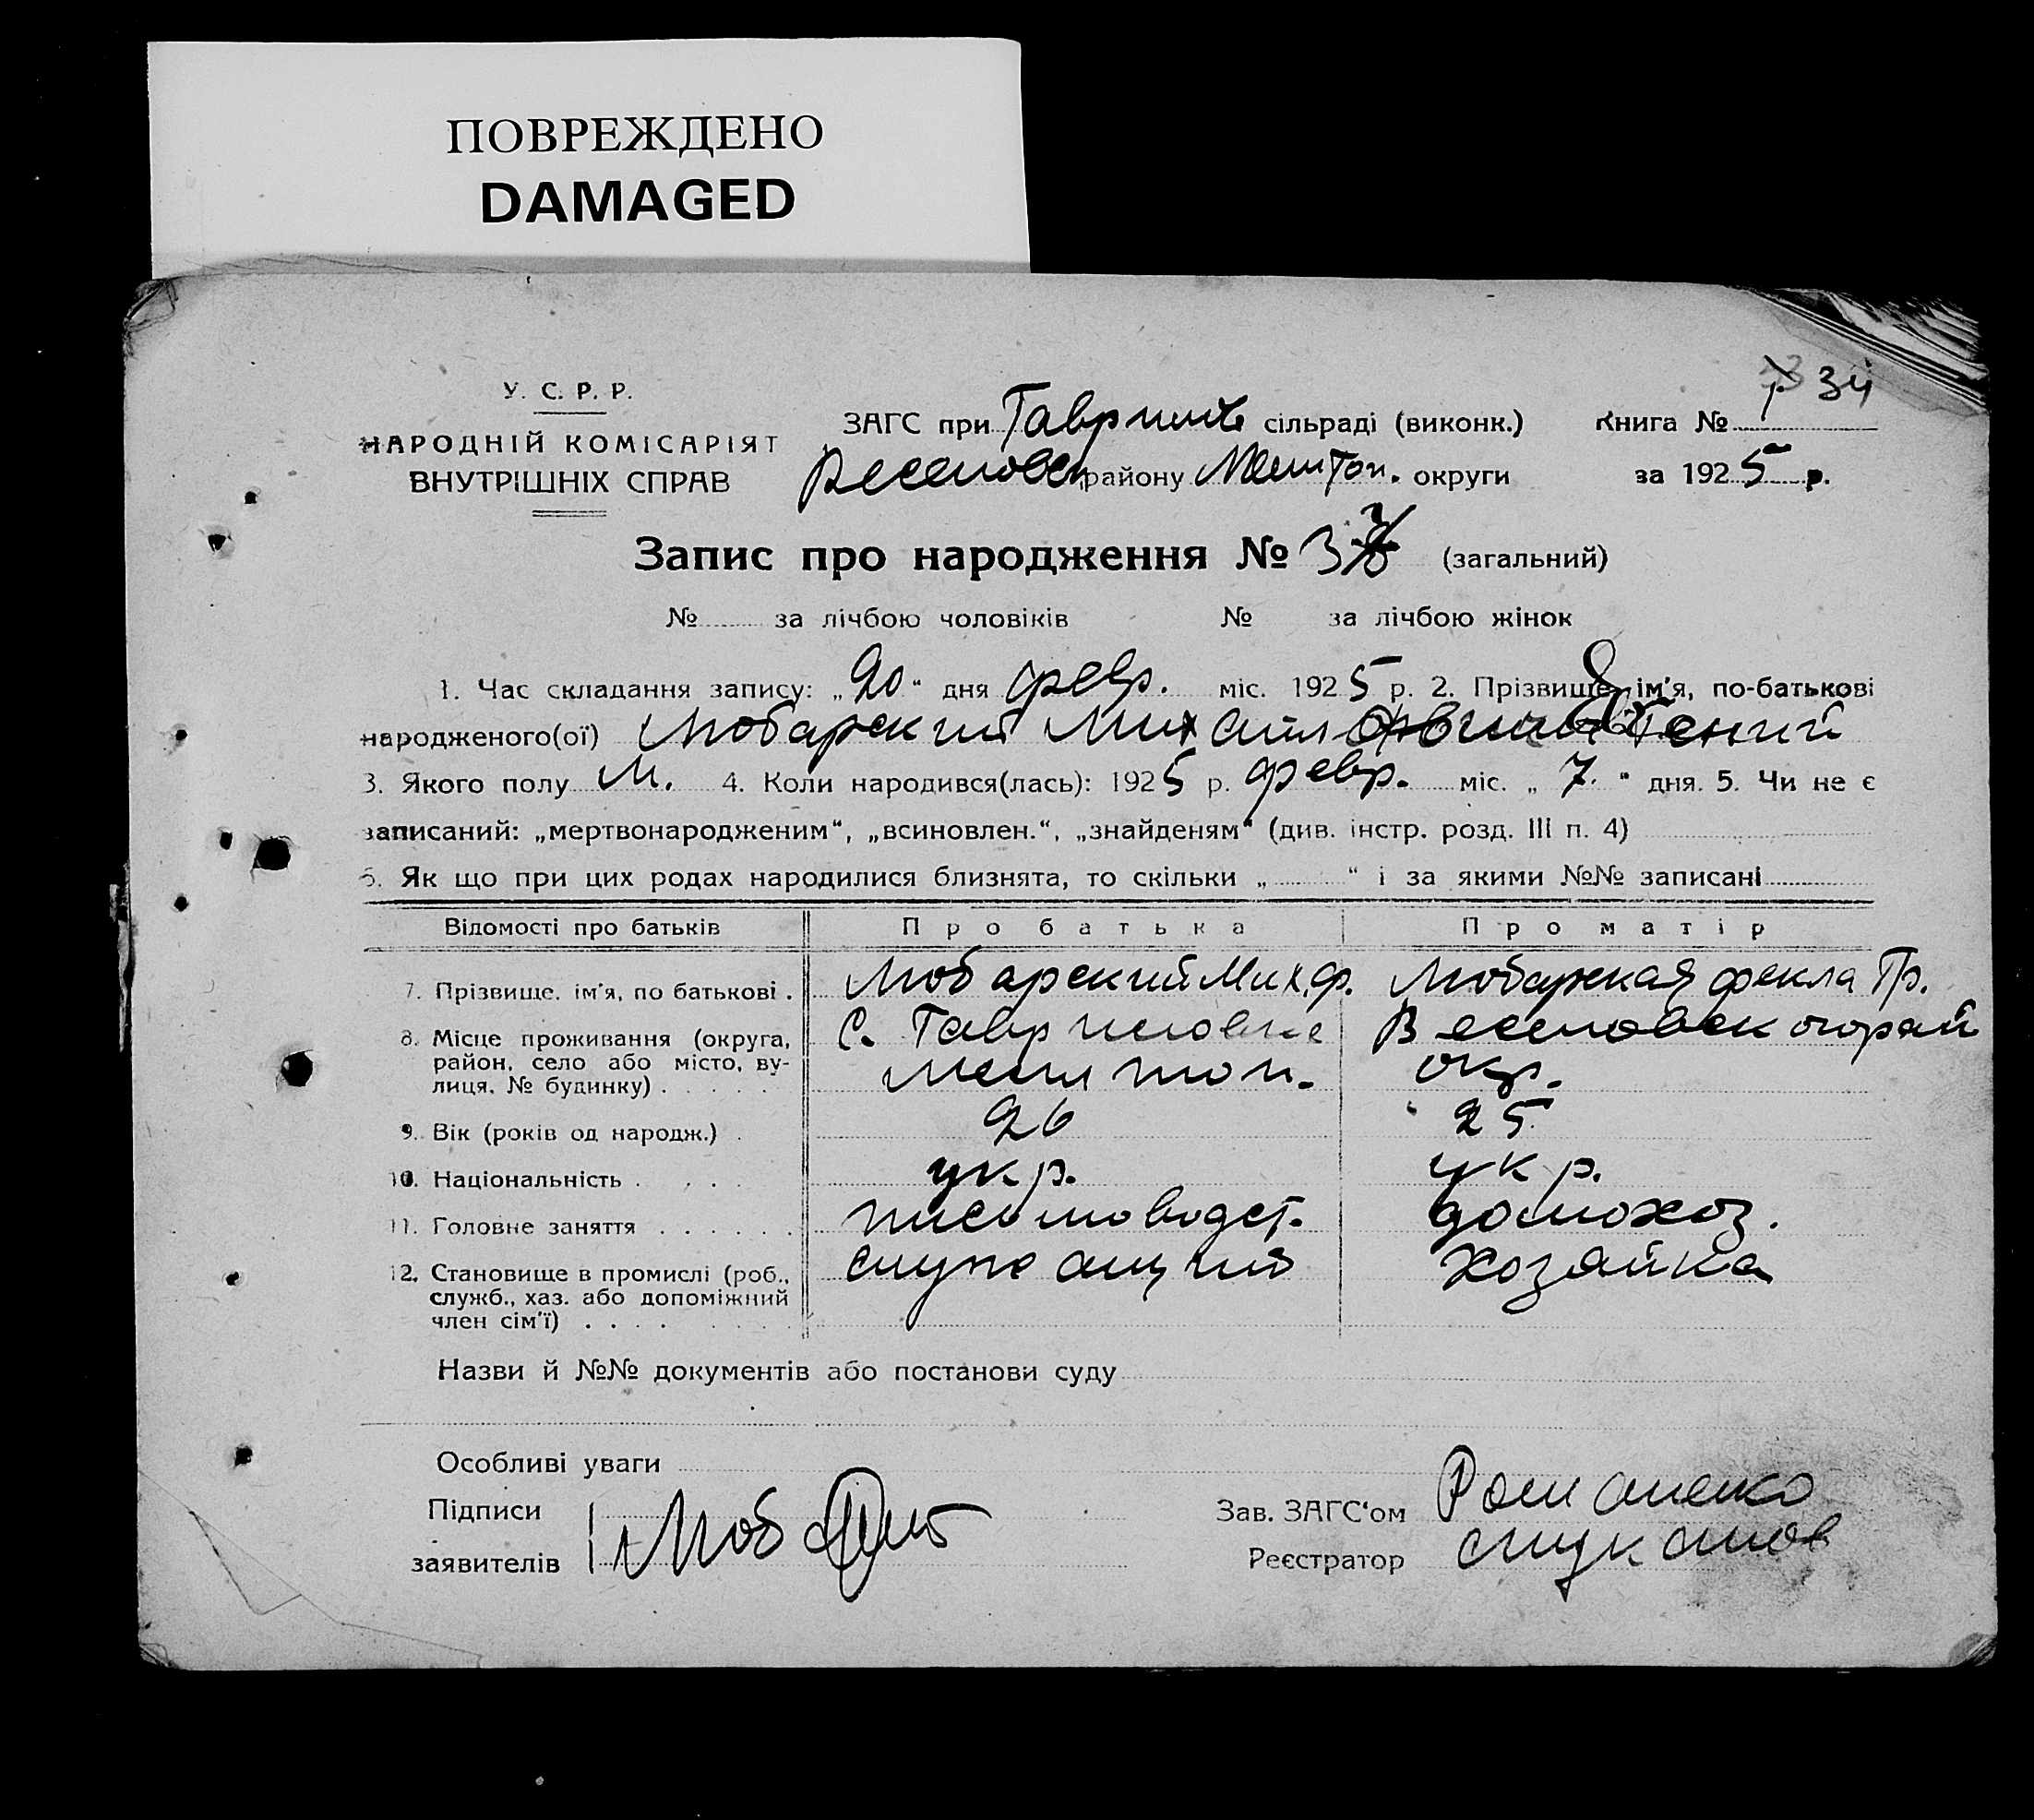 ПОВРЕЖДЕНО
DAMAGED
У. С. Р. Р.
НАРОДНІЙ КОМІСАРІЯТ
ВНУТРІШНІХ СПРАВ
ЗАГС при сільраді (виконк.)
району Мелітоп. округи
Книга № 34
за 1925 р.
Запис про народження № 37 (загальний)
№ за лічбою чоловіків № за лічбою жінок
1. Час складання запису: „20“ дня февр. міс. 1925 р. 2. Прізвище, ім'я, по-батькові
народженого(ої) Любарский
3. Якого полу М. 4. Коли народився(лась): 1925 р. февр. міс. „7.“ дня. 5. Чи не є
записаний: „мертвонародженим“, „всиновлен.“, „знайденям“ (див. інстр. розд. III п. 4)
6. Як що при цих родах народилися близнята, то скільки „ “ і за якими №№ записані
Відомості про батьків Про батька Про матір
7. Прізвище, ім'я, по батькові . Любарский Мих. Ф. Любарская Фекла Гр.
8. Місце проживання (округа, С. Гавриловке
район, село або місто, ву- Мелитоп. окр.
лиця, № будинку) . . . . .
9. Вік (років од народж.) . 26 25
10. Національність . . . . укр. укр.
11. Головне заняття . . . . . . письмоводст. домохоз.
12. Становище в промислі (роб., служащий хозяйка
служб., хаз. або допоміжний
член сім'ї) . . . . . . . .
Назви й №№ документів або постанови суду
Особливі уваги
Підписи
заявителів Люб
Зав. ЗАГС'ом Романенко
Реєстратор